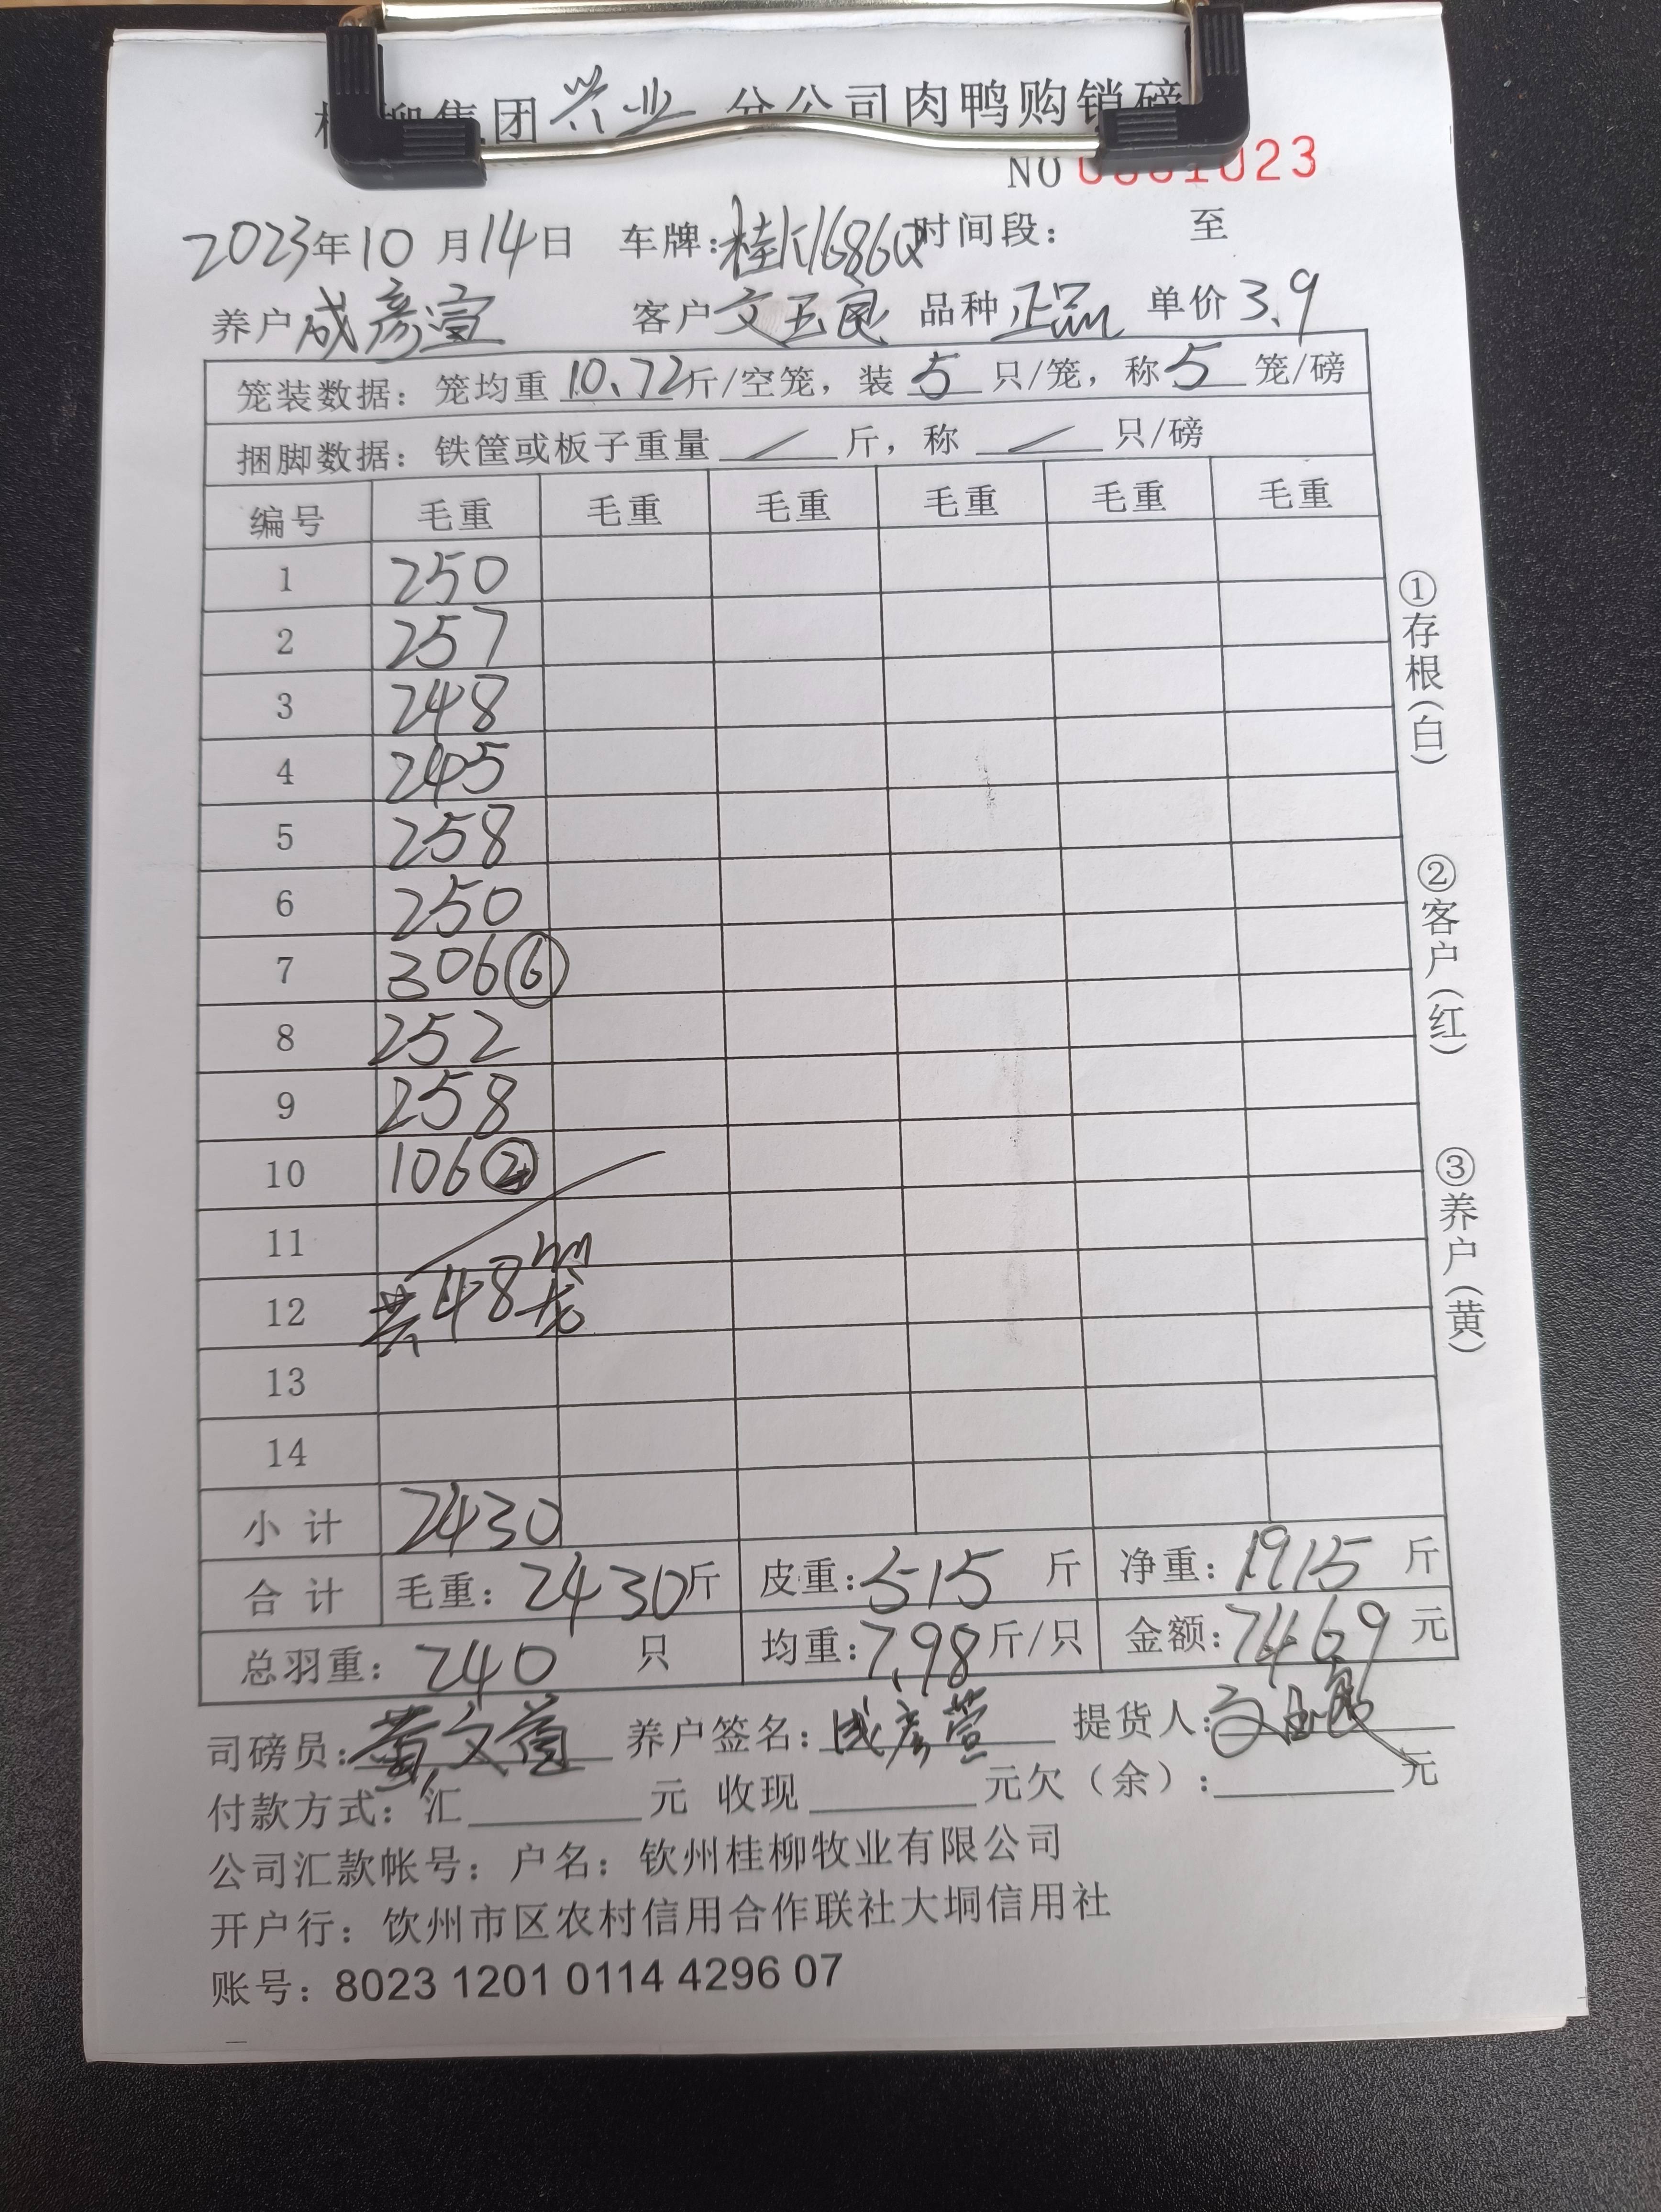 柳集团兴业分公司肉鸭购销磅
NO 0001023
2023年10月14日 车牌:桂K1686Q 时间段: 至
养户 成彦宣 客户 文玉良 品种 正品 单价 3.9
笼装数据: 笼均重 10.72 斤/空笼, 装 5 只/笼, 称 5 笼/磅
捆脚数据: 铁筐或板子重量 / 斤, 称 / 只/磅
编号 毛重 毛重 毛重 毛重 毛重 毛重
1 250
2 257
3 248
4 245
5 258
6 250
7 306 ⑥
8 252
9 258
10 106 ②
11
12 共48笼
13
14
小计 2430
合计 毛重: 2430斤 皮重: 515 斤 净重: 1915 斤
总羽重: 240 只 均重: 7.98斤/只 金额: 7469 元
司磅员: 黄文 养户签名: 成彦萱 提货人: 文玉良
付款方式: 汇 元 收现 元欠（余）: 元
公司汇款帐号: 户名: 钦州桂柳牧业有限公司
开户行: 饮州市区农村信用合作联社大垌信用社
账号: 8023 1201 0114 4296 07
①存根(白)
②客户(红)
③养户(黄)